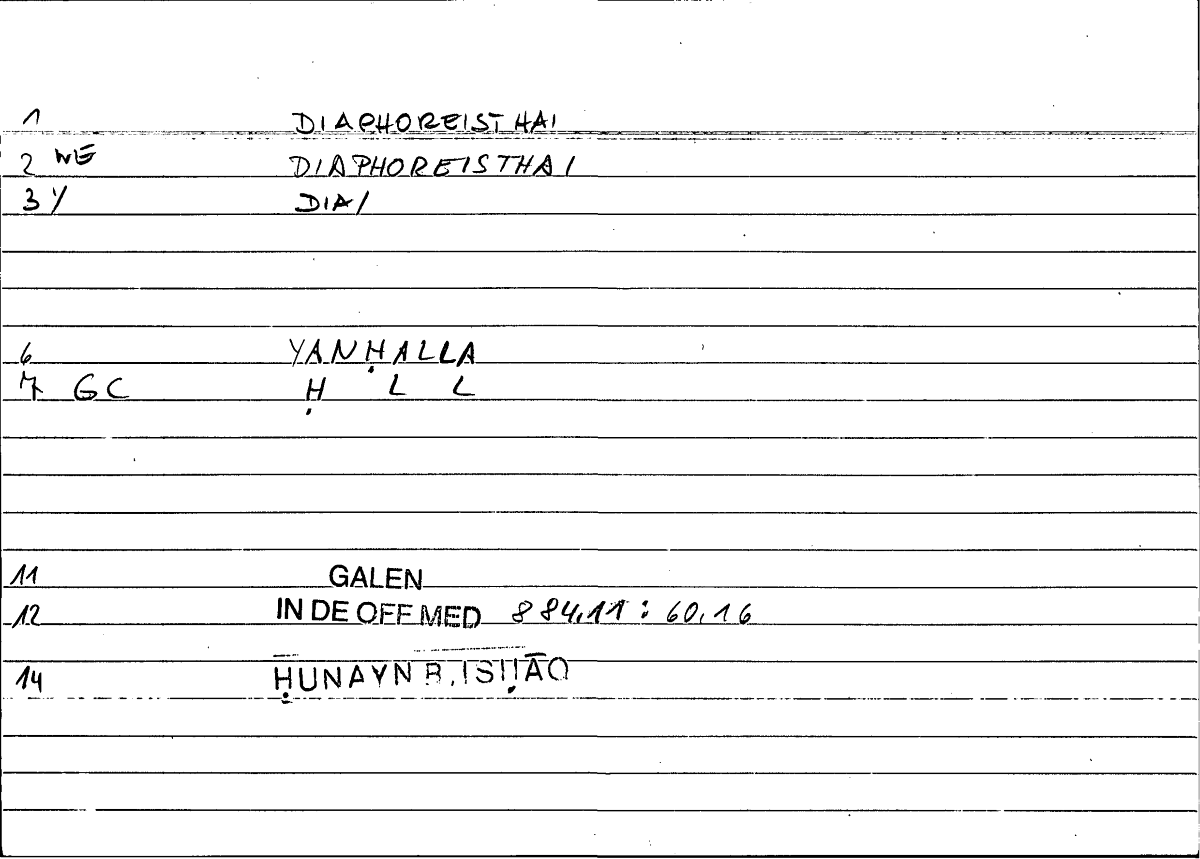 1 DIAPHOREISTHAI
2 WE DIAPHOREISTHAI
3 Y DIA/
6 YANḤALLA
7 GC Ḥ L L
11 GALEN
12 IN DE OFF MED 884,11 : 60,16
14 ḤUNAYN B. ISḤĀQ